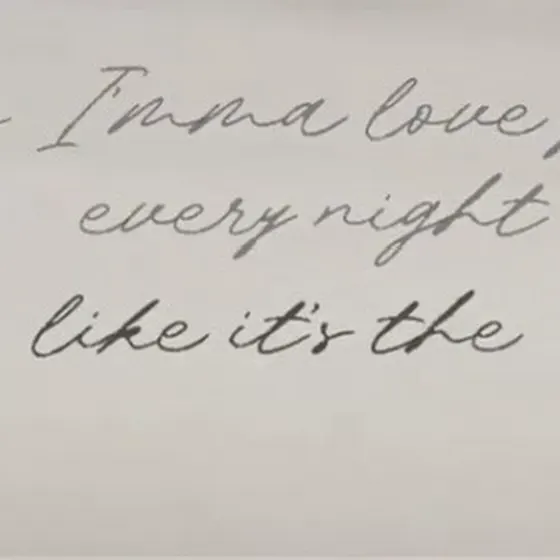 I'mma love,
every night
like it's the